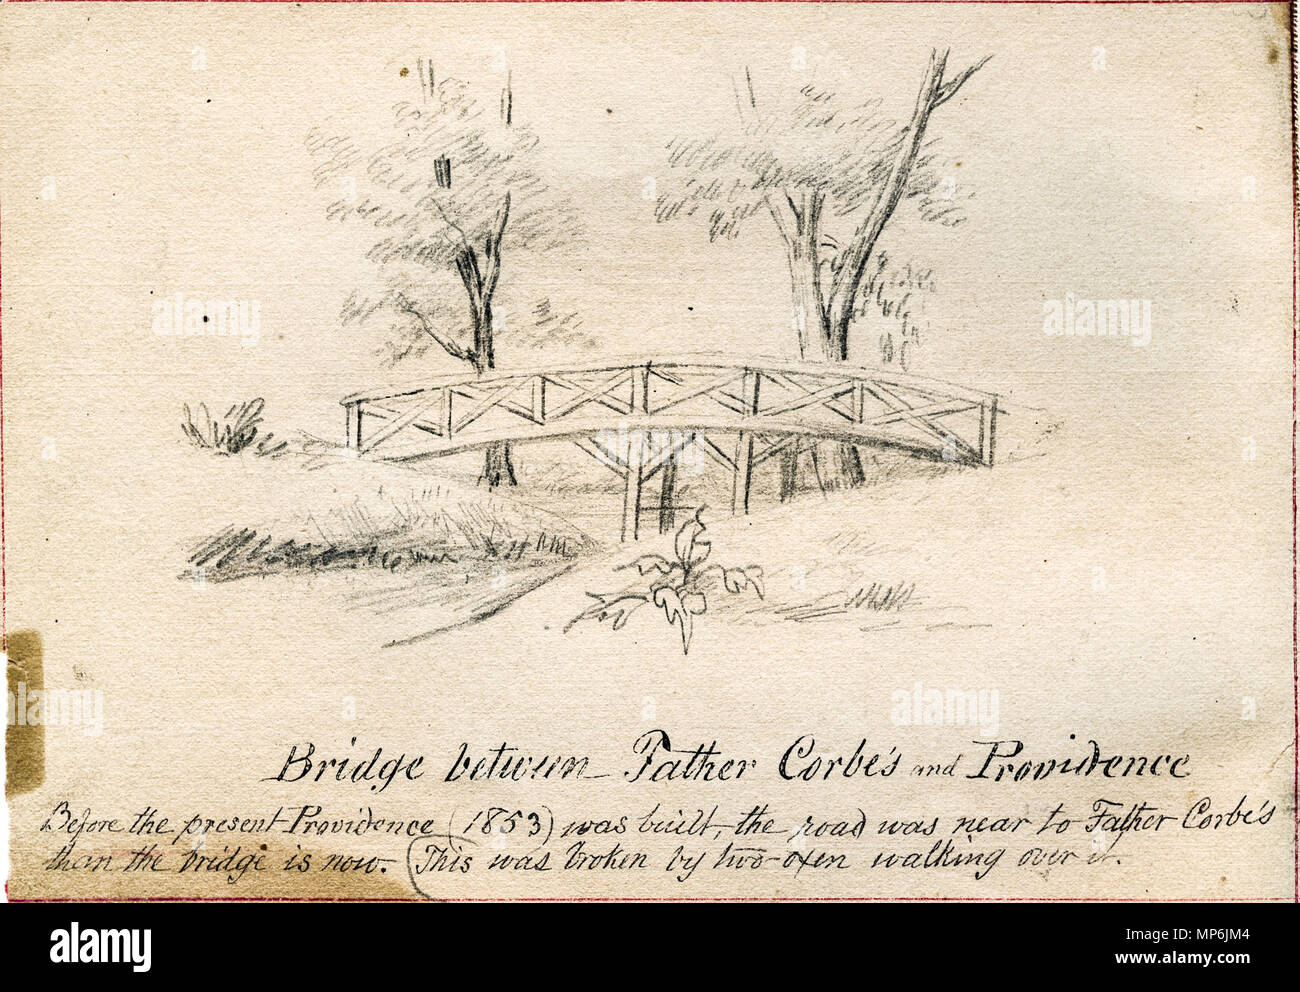 Bridge between Father Corbe's and Providence
Before the present Providence (1853) was built, the road was near to Father Corbe's
than the bridge is now. (This was broken by two oxen walking over it.
alamy
alamy
alamy
alamy
alamy
alamy
alamy
Image ID: MP6JM4
www.alamy.com